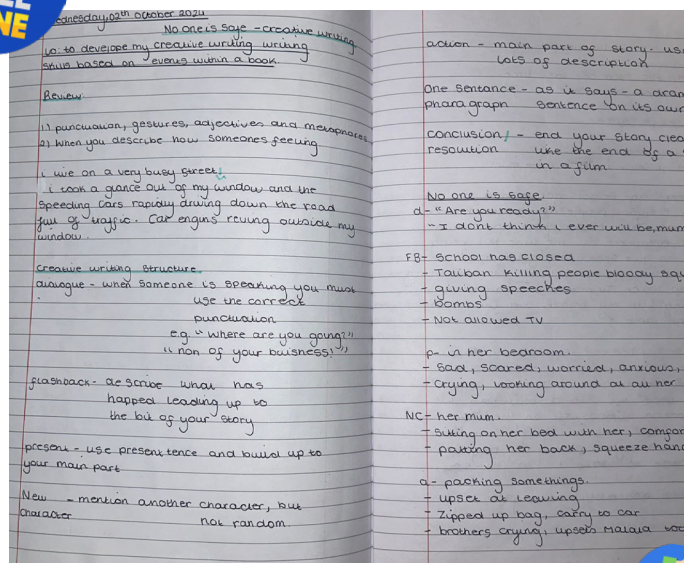 LL
NE
Wednesday, 02th October 2024
No one is safe - creative writing
LO: to develope my creative writing writing
skills based on events within a book
Review:
1) punctuation, gestures, adjectives and metaphores
2) when you describe how someones feeling
i live on a very busy street!
i took a glance out of my window and the
speeding cars rapidly driving down the road
full of traffic. Car engins reving outside my
window.
creative writing structure
dialogue - when someone is speaking you must
use the correct
punctuation
e.g. "where are you going?"
"non of your buisness!"
flashback - describe what has
happed leading up to
the bit of your story
present - use present tence and build up to
your main part
New - mention another character, but
character not random
action - main part of story. us
lots of description
One sentance - as it says - a dram
pharagraph sentence on its own
conclusion / - end your story clea
resolution like the end of a
in a film
No one is safe.
d - "Are you ready?"
- "I dont think i ever will be, mum
FB - school has closed
- Taliban killing people bloody squ
- giving speeches
- bombs
- Not allowed TV
p - in her bedroom.
- sad, scared, worried, anxious,
- crying, looking around at all her
NC - her mum.
- sitting on her bed with her, comfor
- patting her back, squeeze hand
a - packing somethings.
- upset at leaving
- zipped up bag, carry to car
- brothers crying, upsets Malala too